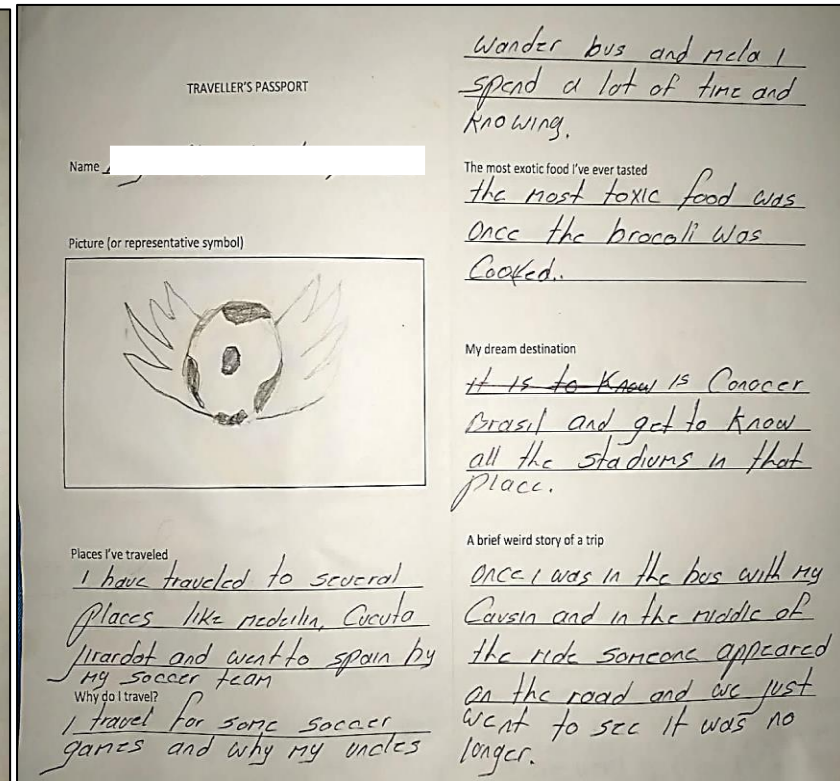 TRAVELLER'S PASSPORT
Name
Picture (or representative symbol)
Places I've traveled
I have traveled to several
places like medellin, Cucuta
jirardot and went to spain by
my soccer team
Why do I travel?
I travel for some soccer
games and why my uncles
wander bus and mela I
spend a lot of time and
knowing.
The most exotic food I've ever tasted
the most toxic food was
once the brocoli was
Cooked..
My dream destination
it is to know is Conocer
Brasil and get to know
all the stadiums in that
place.
A brief weird story of a trip
Once I was in the bus with my
Causin and in the middle of
the ride someone appeared
on the road and we just
went to see it was no
longer.